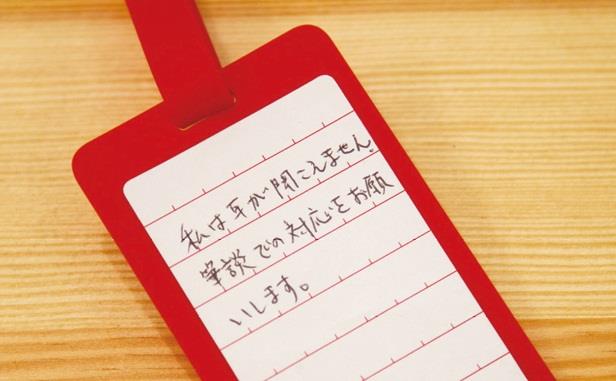 私は耳が聞こえません。
筆談での対応をお願
いします。